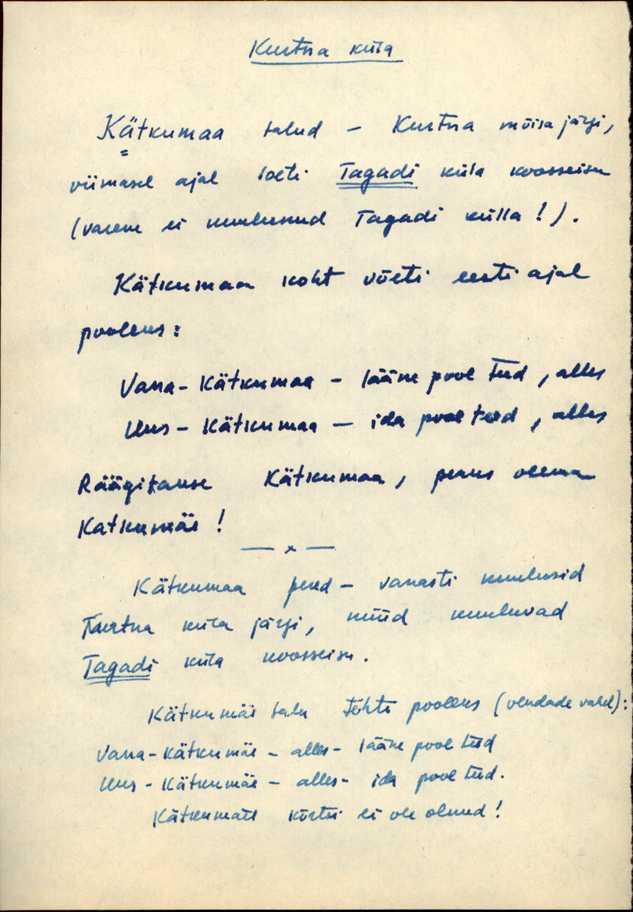 Kurtna küla
Kätkumaa talud – Kurtna mõisa järgi,
viimasel ajal loeti Tagadi küla koosseisu
(varem ei kuulunud Tagadi külla!).
Kätkumaa koht võeti eesti ajal
pooleks:
Vana-Kätkumaa – lääne pool teed, alles
Uus-Kätkumaa – ida pool teed, alles
Räägitakse Kätkumaa, peaks olema
Katkumäe!
— x —
Kätkumaa pered – vanasti kuulusid
Kurtna küla järgi, nüüd kuuluvad
Tagadi küla koosseisu.
Kätkumäe talu tehti pooleks (vendade vahel):
Vana-Kätkumäe – alles – lääne pool teed
Uus-Kätkumäe – alles – ida pool teed.
Kätkumäel kõrtsi ei ole olnud!